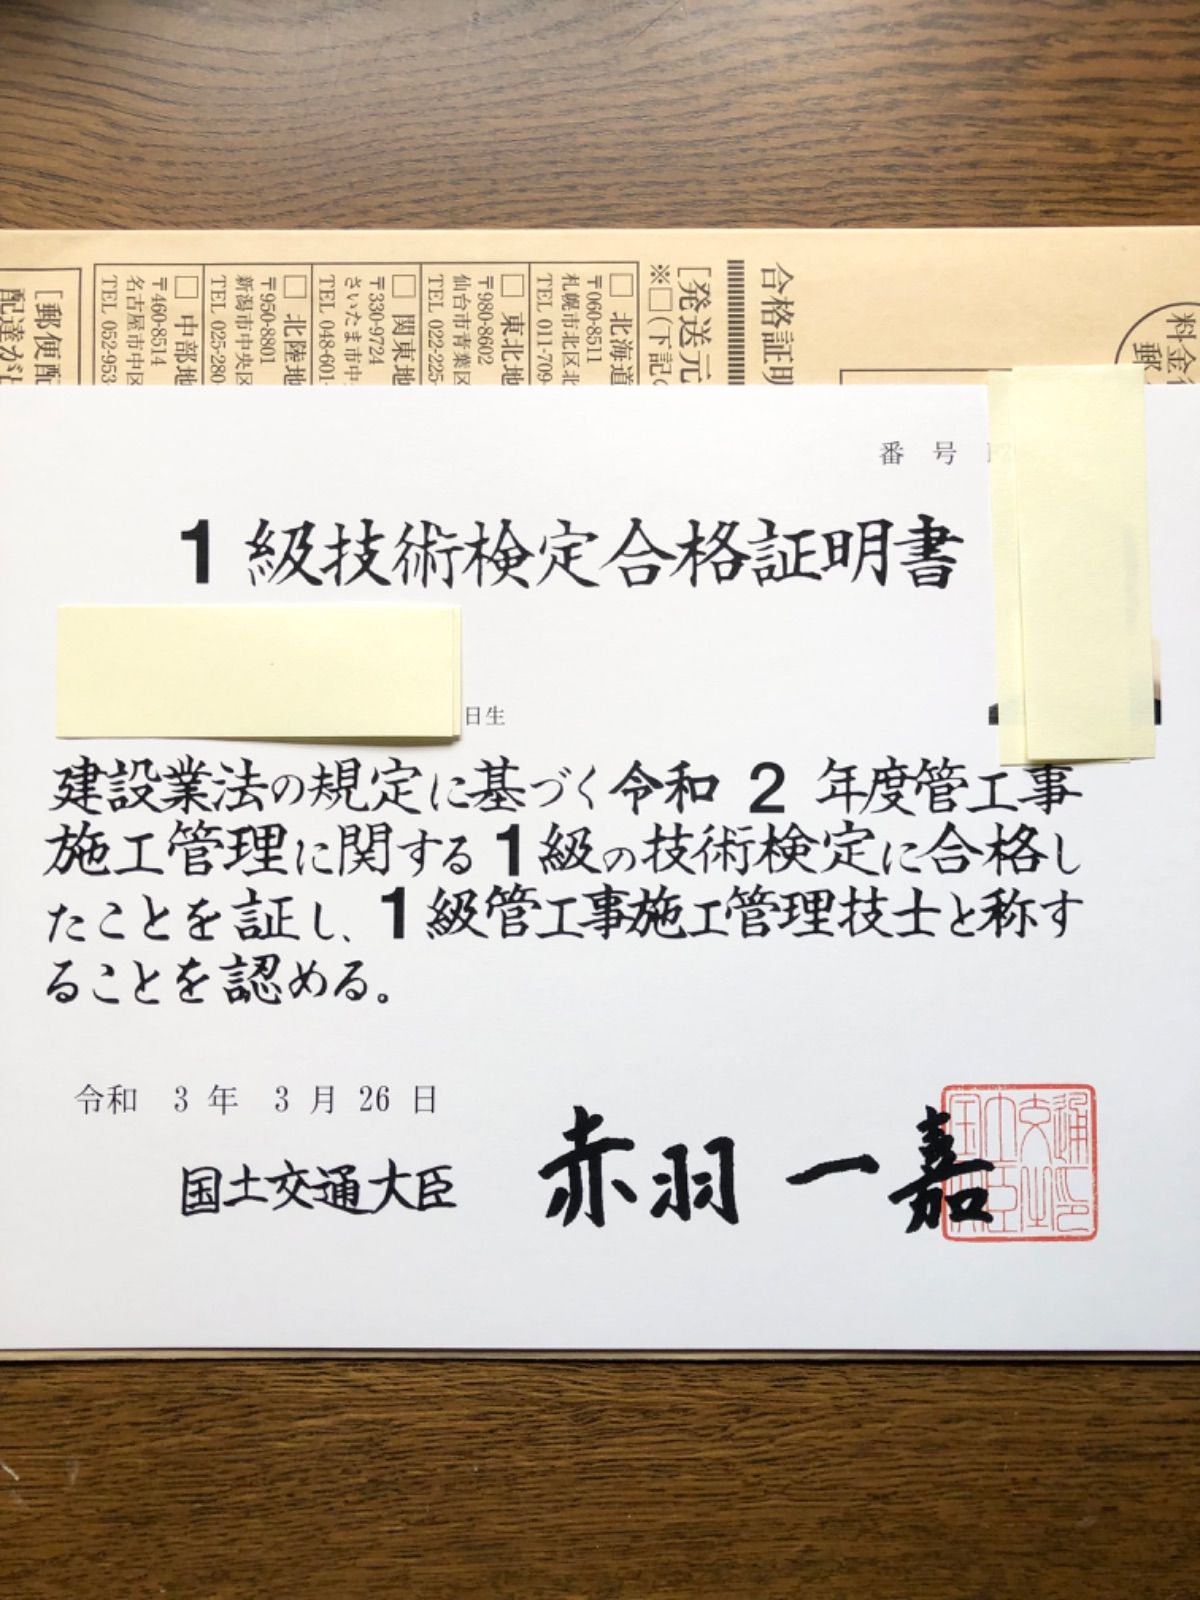 料金後
郵
合格証明
[発送元
※□(下記の
□ 北海道
〒060-8511
札幌市北区北
TEL 011-709-
□ 東北地
〒980-8602
仙台市青葉区
TEL 022-225-
□ 関東地
〒330-9724
さいたま市中
TEL 048-601-
□ 北陸地
〒950-8801
新潟市中央区
TEL 025-280-
□ 中部地
〒460-8514
名古屋市中区
TEL 052-953-
[郵便配
配達が
番 号
1級技術検定合格証明書
日生
建設業法の規定に基づく令和 2 年度管工事
施工管理に関する1級の技術検定に合格し
たことを証し、1級管工事施工管理技士と称す
ることを認める。
令和 3 年 3 月 26 日
国土交通大臣 赤羽 一嘉